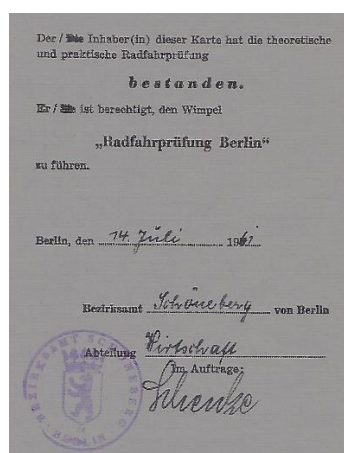 Der / Die Inhaber(in) dieser Karte hat die theoretische
und praktische Radfahrprüfung
bestanden.
Er / Sie ist berechtigt, den Wimpel
„Radfahrprüfung Berlin“
zu führen.
Berlin, den 14. Juli 1961
Bezirksamt Schöneberg von Berlin
Abteilung Wirtschaft
Im Auftrage:
BEZIRKSAMT SCHÖNEBERG
BERLIN